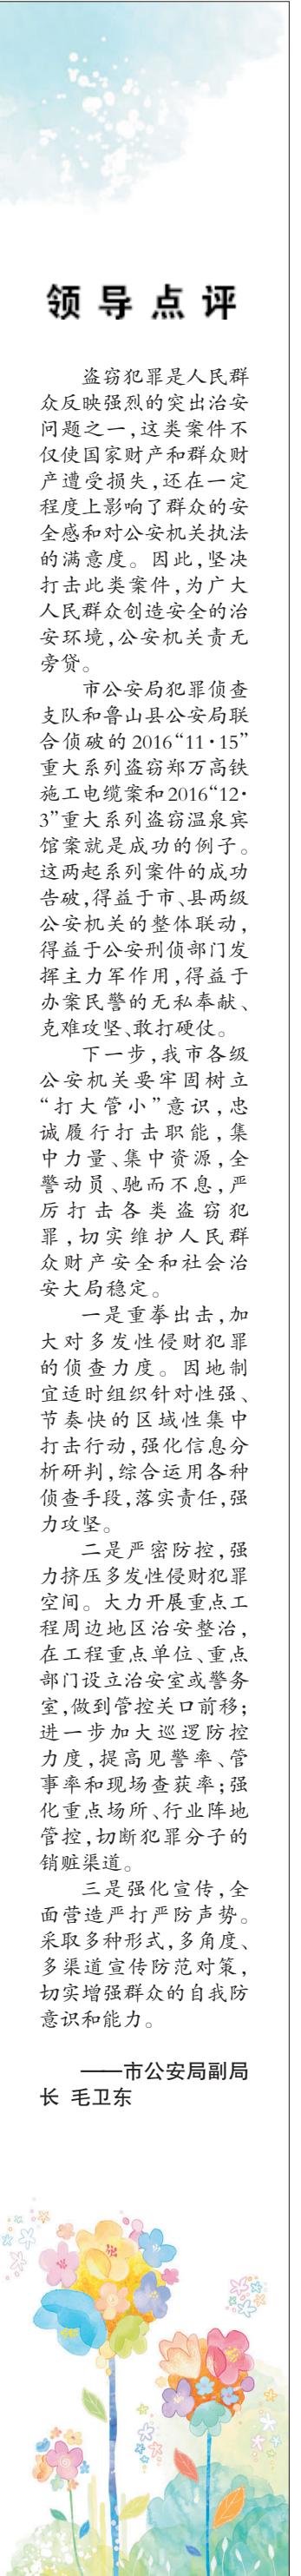 领导点评
盗窃犯罪是人民群
众反映强烈的突出治安
问题之一,这类案件不
仅使国家财产和群众财
产遭受损失,还在一定
程度上影响了群众的安
全感和对公安机关执法
的满意度。因此,坚决
打击此类案件,为广大
人民群众创造安全的治
安环境,公安机关责无
旁贷。
市公安局犯罪侦查
支队和鲁山县公安局联
合侦破的2016“11·15”
重大系列盗窃郑万高铁
施工电缆案和2016“12·
3”重大系列盗窃温泉宾
馆案就是成功的例子。
这两起系列案件的成功
告破,得益于市、县两级
公安机关的整体联动,
得益于公安刑侦部门发
挥主力军作用,得益于
办案民警的无私奉献、
克难攻坚、敢打硬仗。
下一步,我市各级
公安机关要牢固树立
“打大管小”意识,忠
诚履行打击职能,集
中力量、集中资源,全
警动员、驰而不息,严
厉打击各类盗窃犯
罪,切实维护人民群
众财产安全和社会治
安大局稳定。
一是重拳出击,加
大对多发性侵财犯罪
的侦查力度。因地制
宜适时组织针对性强、
节奏快的区域性集中
打击行动,强化信息分
析研判,综合运用各种
侦查手段,落实责任,强
力攻坚。
二是严密防控,强
力挤压多发性侵财犯罪
空间。大力开展重点工
程周边地区治安整治,
在工程重点单位、重点
部门设立治安室或警务
室,做到管控关口前移;
进一步加大巡逻防控
力度,提高见警率、管
事率和现场查获率;强
化重点场所、行业阵地
管控,切断犯罪分子的
销赃渠道。
三是强化宣传,全
面营造严打严防声势。
采取多种形式,多角度、
多渠道宣传防范对策,
切实增强群众的自我防
意识和能力。
——市公安局副局
长 毛卫东